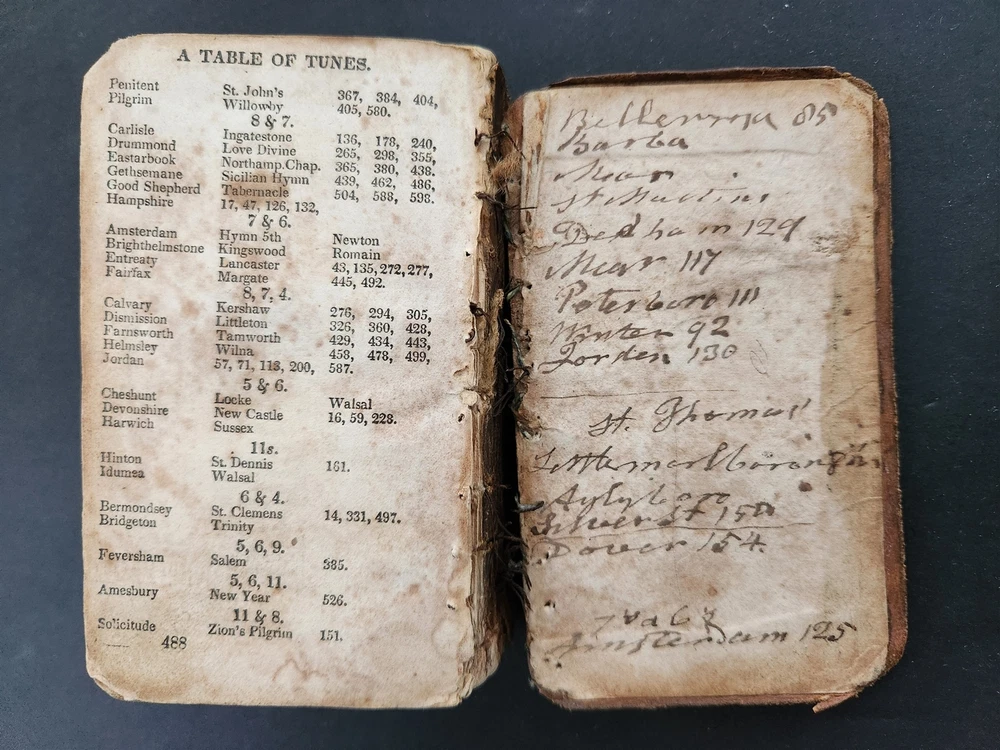 A TABLE OF TUNES.
Penitent St. John's 367, 384, 404,
Pilgrim Willowby 405, 580.
8 & 7.
Carlisle Ingatestone 136, 178, 240,
Drummond Love Divine 265, 298, 355,
Eastarbook Northamp.Chap. 365, 380, 438.
Gethsemane Sicilian Hymn 439, 462, 486,
Good Shepherd Tabernacle 504, 588, 598.
Hampshire 17, 47, 126, 132,
7 & 6.
Amsterdam Hymn 5th Newton
Brighthelmstone Kingswood Romain
Entreaty Lancaster 43, 135, 272, 277,
Fairfax Margate 445, 492.
8, 7, 4.
Calvary Kershaw 276, 294, 305,
Dismission Littleton 326, 360, 428,
Farnsworth Tamworth 429, 434, 443,
Helmsley Wilna 458, 478, 499,
Jordan 57, 71, 113, 200, 587.
5 & 6.
Cheshunt Locke Walsal
Devonshire New Castle 16, 59, 228.
Harwich Sussex
11s.
Hinton St. Dennis 161.
Idumea Walsal
6 & 4.
Bermondsey St. Clemens 14, 331, 497.
Bridgeton Trinity
5, 6, 9.
Feversham Salem 385.
5, 6, 11.
Amesbury New Year 526.
11 & 8.
Solicitude Zion's Pilgrim 151.
488
85
Barba
Mear
St Martins
Dedham 129
Mear 117
Peterboro 111
Winter 92
Jorden 130
St. Thomas
Aylyboro
Silver St
Dover 154
Amsterdam 125